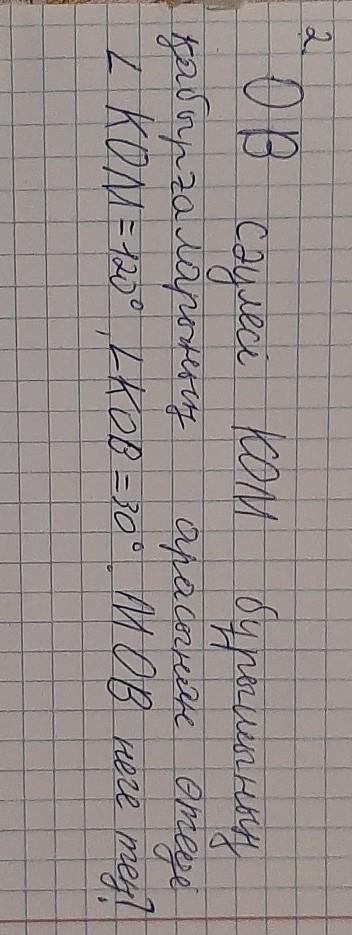 2. OB сәулесі KOM бұрышының
қабырғаларының арасынан өтеді
∠ KOM = 120°, ∠KOB = 30°. MOB неге тең?